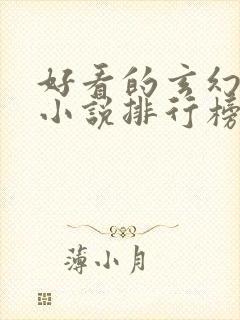 好看的玄幻
小说排行榜
薄小月